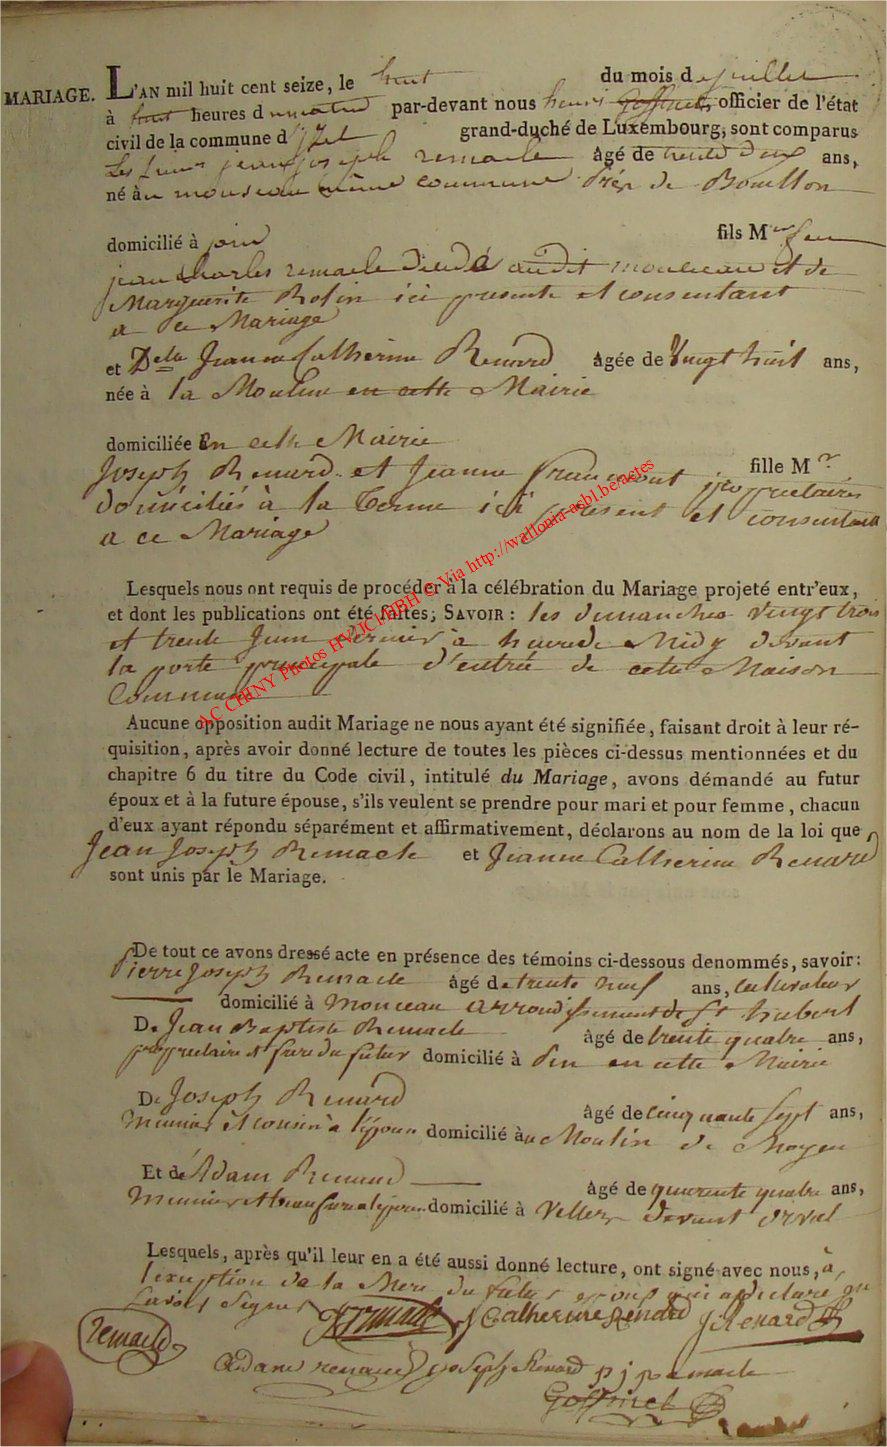 MARIAGE. L'AN mil huit cent seize, le huit du mois de juillet
à huit heures du matin par-devant nous henri Goffinet, officier de l'état
civil de la commune d'jzel grand-duché de Luxembourg, sont comparus
Les Sieurs jean joseph remacle âgé de trente deux ans,
né au monseau même commune Prés de Bouillon
domicilié à pin fils Mr feu
jean charles remacle décédé audit mouceau et de
Marguerite Rolin ici presente et consentant
a ce Mariage
et Delle Jeanne Catherine Renard âgée de Vingt huit ans,
née à la Moulin en cette Mairie
domiciliée En cette Mairie
fille Mr
Joseph Renard et Jeanne propriétaires
domiciliés à la ici présent et consentant
a ce Mariage
Lesquels nous ont requis de procéder à la célébration du Mariage projeté entr'eux,
et dont les publications ont été faites; SAVOIR : les dimanches vingt trois
et trente Juin dernier à heure de Midy devant
la porte principale d'entrée de cette Maison
Commune
AC CHINY Photos HV JCI HBH © Via http://wallonia-asbl.be/actes
Aucune opposition audit Mariage ne nous ayant été signifiée, faisant droit à leur ré-
quisition, après avoir donné lecture de toutes les pièces ci-dessus mentionnées et du
chapitre 6 du titre du Code civil, intitulé du Mariage, avons démandé au futur
époux et à la future épouse, s'ils veulent se prendre pour mari et pour femme, chacun
d'eux ayant répondu séparément et affirmativement, déclarons au nom de la loi que
Jean Joseph Remacle et Jeanne Catherine Renard
sont unis par le Mariage.
De tout ce avons dressé acte en présence des témoins ci-dessous denommés, savoir:
Pierre Joseph Remacle âgé de trente neuf ans, cultivateur
domicilié à Monceau arrondissement de St hubert
De Jean Baptiste Remacle âgé de trente quatre ans,
propriétaire et frere du futur domicilié à Pin en cette Mairie
De Joseph Renard âgé de cinquante sept ans,
Meunier et cousin a l'épouse domicilié au Moulin de Moyen
Et de Adam Renard âgé de quarente quatre ans,
Meunier et beau frere a l'épouse domicilié à Villers devant orval
Lesquels, après qu'il leur en a été aussi donné lecture, ont signé avec nous, à
l'exception de la Mere du futur epoux qui a déclaré ne
Savoir Signer
remacle JJ remacle J Catherine Renard J Renard
Adam renard joseph Renard p j remacle
Goffinet